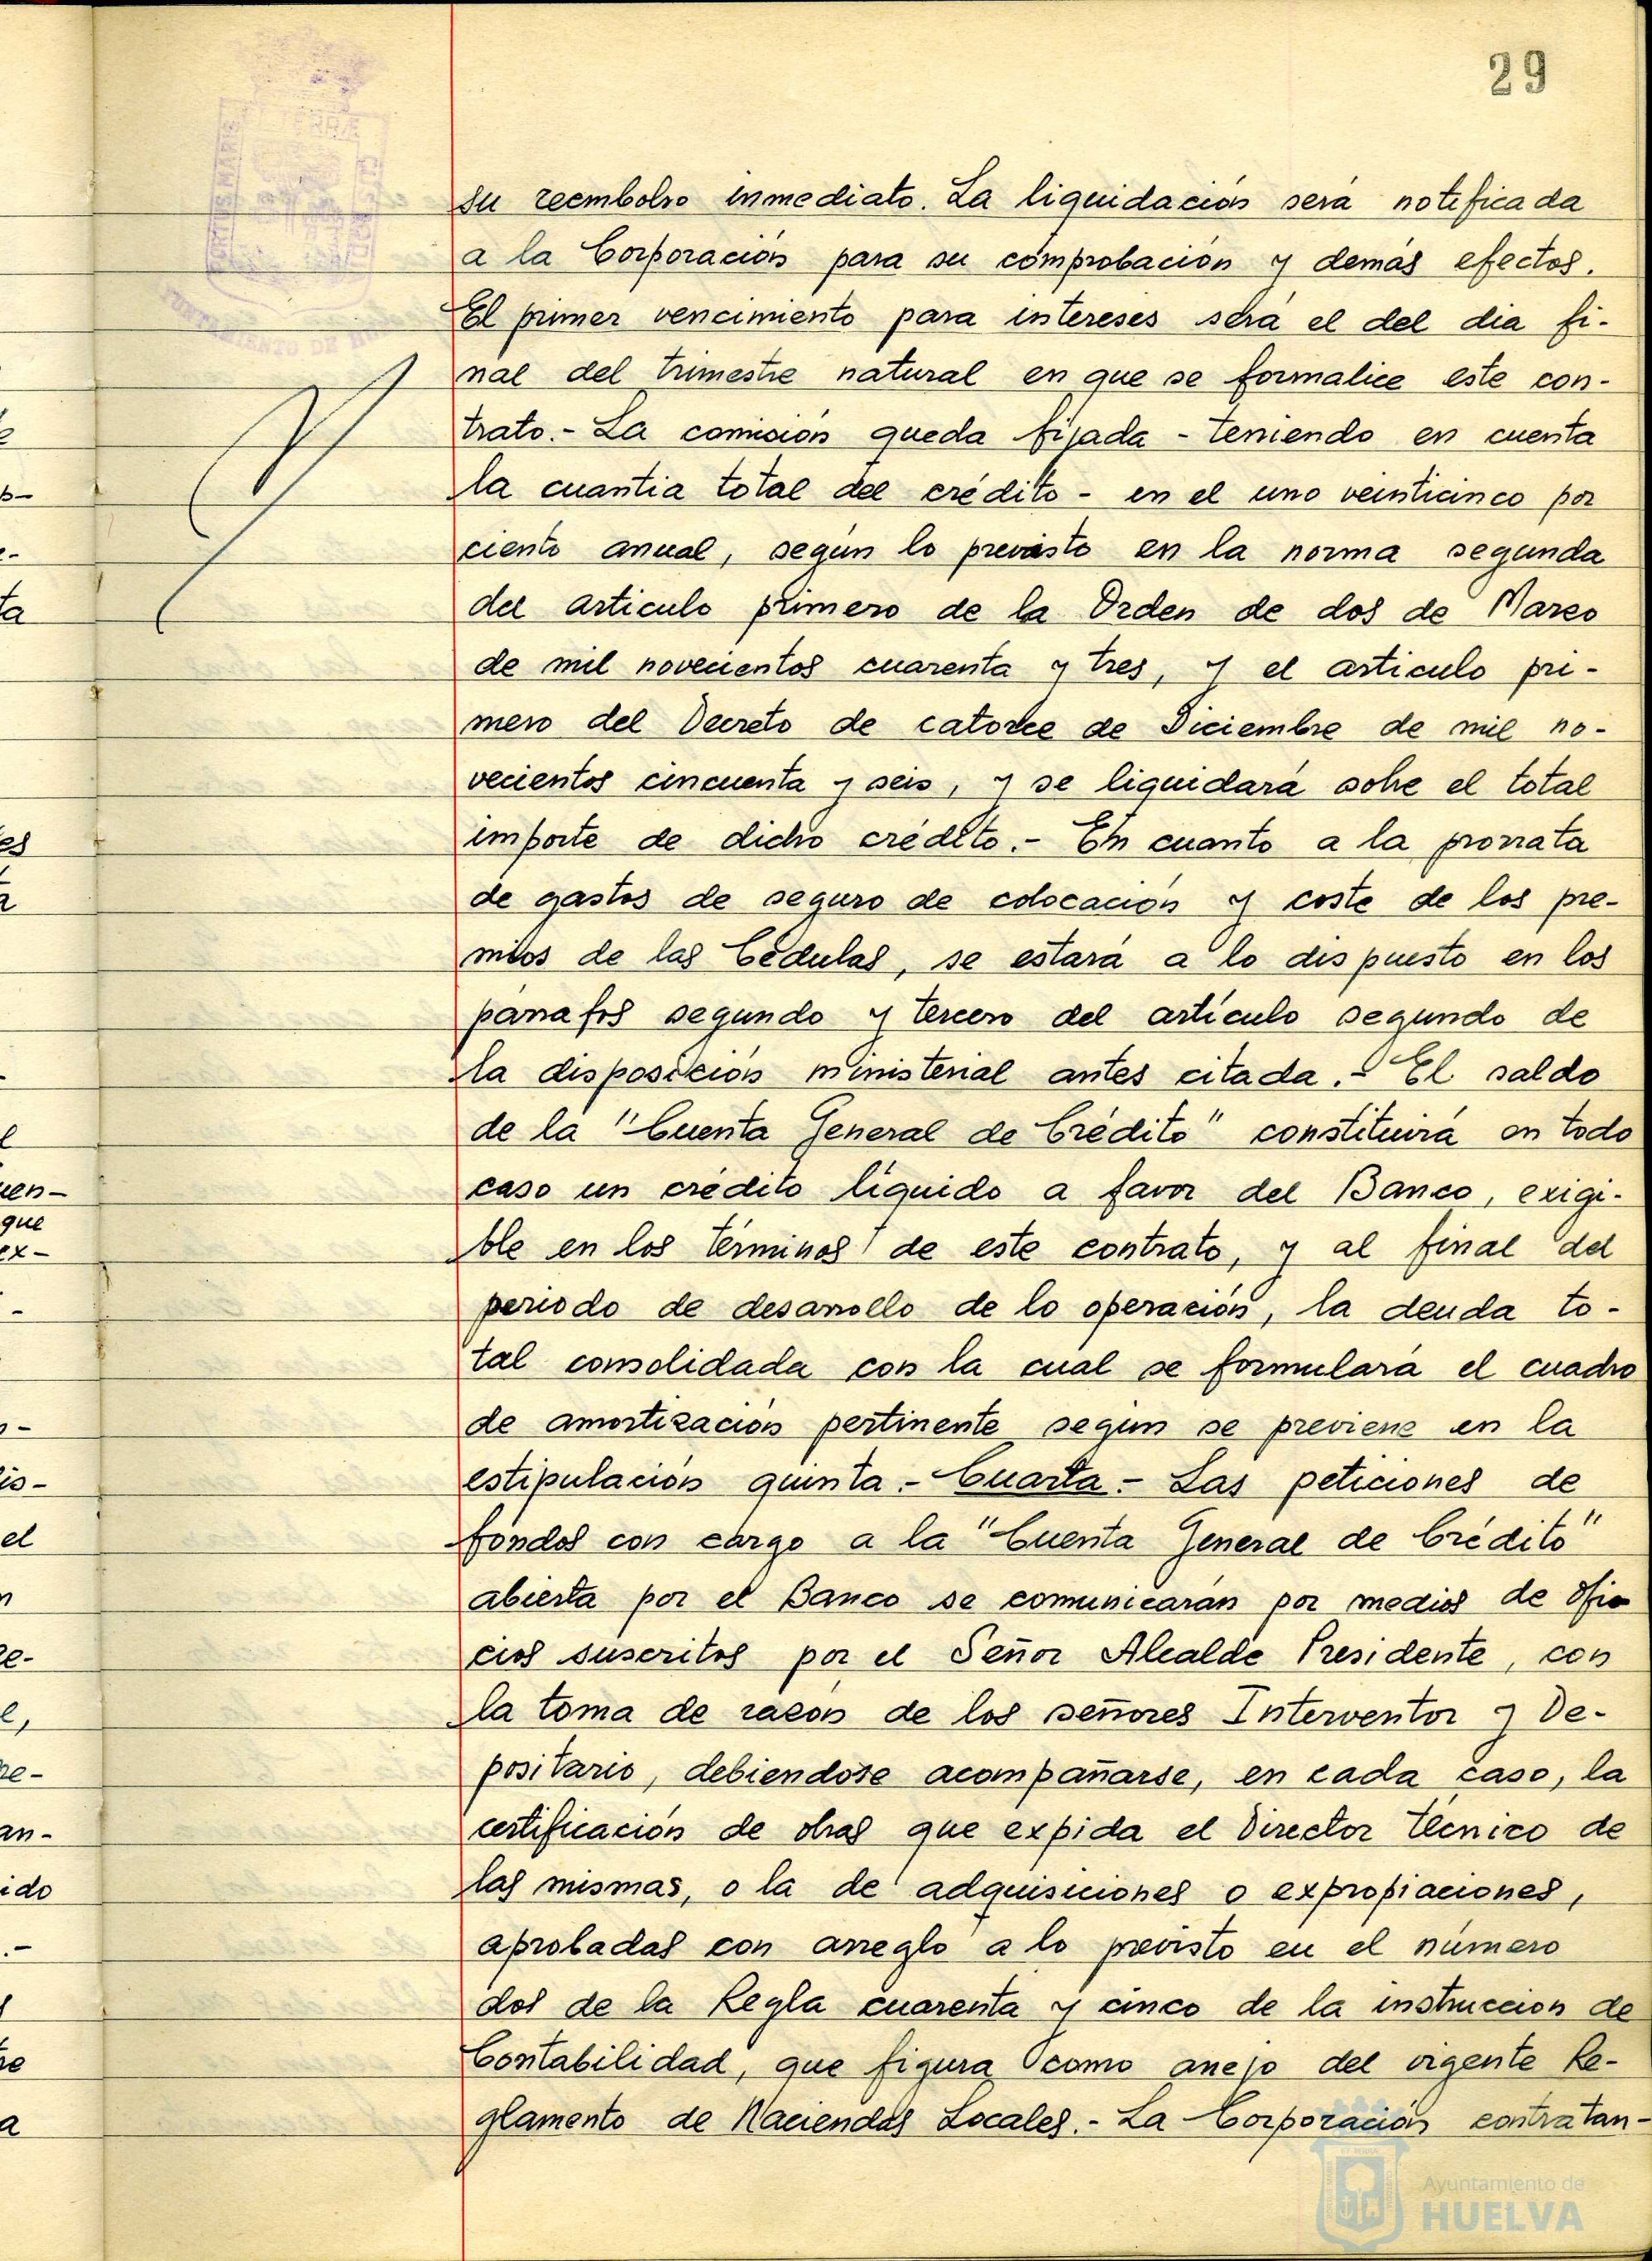 29
PORTUS MARIS
TERRAE
CUSTODIA
AYUNTAMIENTO DE HUELVA
su reembolso inmediato. La liquidación será notificada
a la Corporación para su comprobación y demás efectos.
El primer vencimiento para intereses será el del dia fi-
nal del trimestre natural en que se formalice este con-
trato.- La comisión queda fijada - teniendo en cuenta
la cuantia total del crédito - en el uno veinticinco por
ciento anual, según lo previsto en la norma segunda
del articulo primero de la Orden de dos de Marzo
de mil novecientos cuarenta y tres, y el articulo pri-
mero del Decreto de catorce de Diciembre de mil no-
vecientos cincuenta y seis, y se liquidará sobre el total
importe de dicho crédito.- En cuanto a la prorrata
de gastos de seguro de colocación y coste de los pre-
mios de las Cédulas, se estará a lo dispuesto en los
párrafos segundo y tercero del artículo segundo de
la disposición ministerial antes citada.- El saldo
de la "Cuenta General de Crédito" constituirá en todo
caso un crédito líquido a favor del Banco, exigi-
ble en los términos de este contrato, y al final del
periodo de desarrollo de lo operación, la deuda to-
tal consolidada con la cual se formulará el cuadro
de amortización pertinente según se previene en la
estipulación quinta.- Cuarta.- Las peticiones de
fondos con cargo a la "Cuenta General de Crédito"
abierta por el Banco se comunicarán por medios de ofi-
cios suscritos por el Señor Alcalde Presidente, con
la toma de razón de los señores Interventor y De-
positario, debiendose acompañarse, en cada caso, la
certificación de obras que expida el Director Técnico de
las mismas, o la de adquisiciones o expropiaciones,
aprobadas con arreglo a lo previsto en el número
dos de la Regla cuarenta y cinco de la instruccion de
Contabilidad, que figura como anejo del vigente Re-
glamento de Haciendas Locales.- La Corporación contratan-
Ayuntamiento de
HUELVA